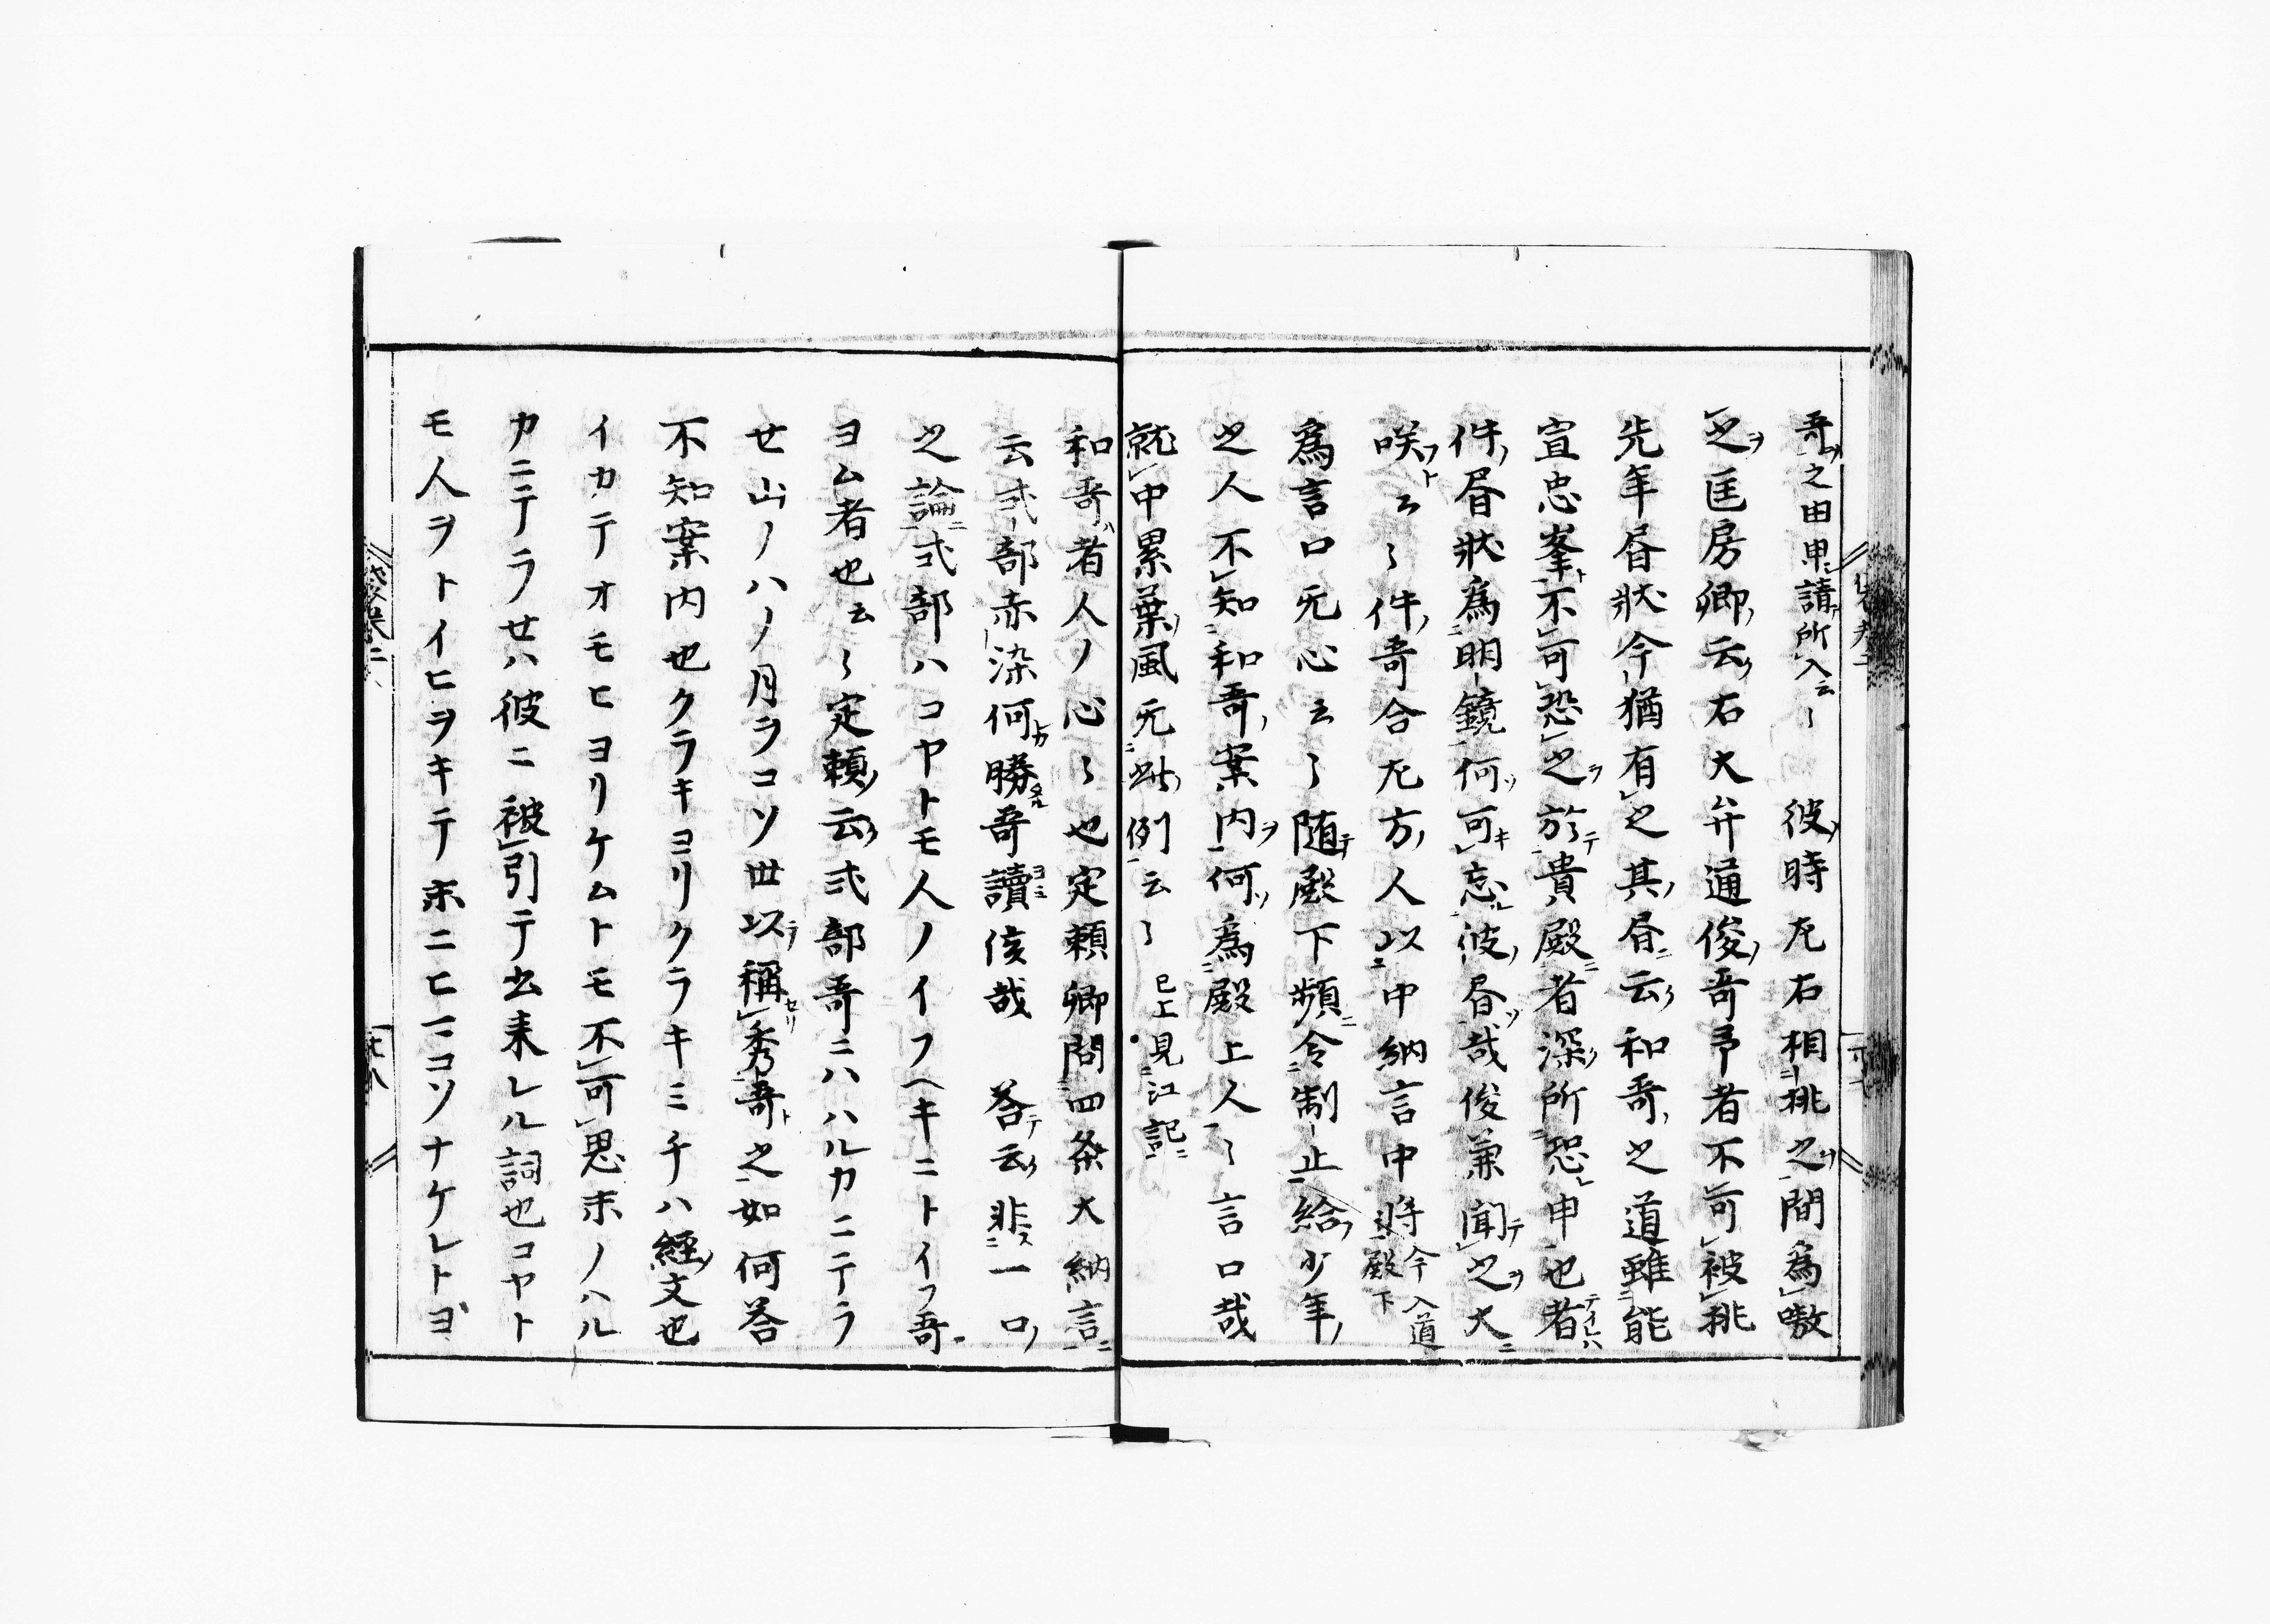 哥ノ之由申請所入云々　彼時左右相挑之間為嗷
之匡房卿云右大弁通俊哥予者不可被挑
先年昼状今猶有之其昼云和哥之道雖能
宣忠峯不可恐之於貴殿者深所恐申也者
件昼状為明鏡何可忘彼昼哉俊兼聞之大
咲云々件哥合左方人以中納言中将今入道殿下
為言口无心云々随殿下頻令制止給少年
之人不知和哥案内何為殿上人々言口哉
就中累葉風无此例云々　已上見江記
和哥者人ノ心々也定頼卿問四条大納言
云式部赤染何勝哥讀侅哉　荅云非一口
之論式部ハコヤトモ人ノイフヘキニトイフ哥
ヨム者也云々定頼云式部哥ニハハルカニテラ
せ山ノハノ月ヲコソ世以稱秀哥之如何荅
不知案内也クラキヨリクラキミチハ經文也
イカテオモヒヨリケムトモ不可思末ノハル
カニテラせハ彼ニ被引テ出来レル詞也コヤト
モ人ヲトイヒヲキテ末ニヒマコソナケレトヨ